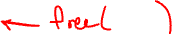 ← freel )